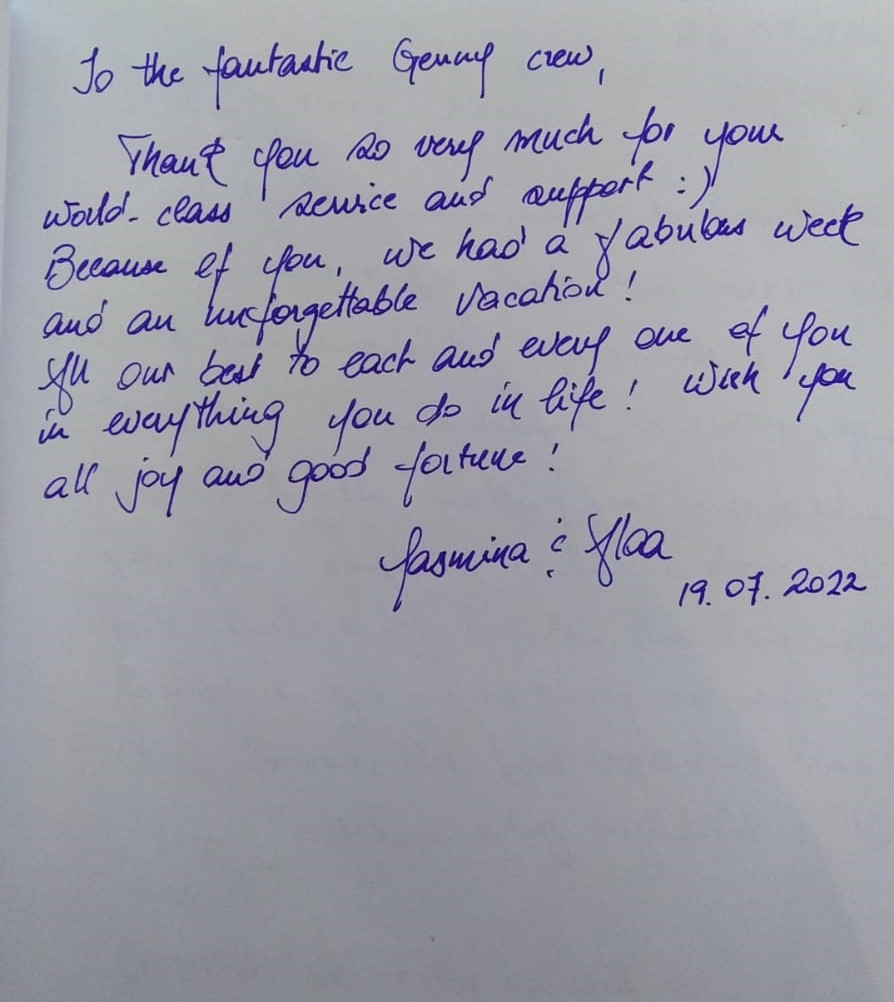 To the fantastic Genny crew,
Thank you so very much for your
world-class service and support :)
Because of you, we had a fabulous week
and an unforgettable vacation!
All our best to each and every one of you
in everything you do in life! Wish you
all joy and good fortune!
Jasmina & Alaa
19.07.2022